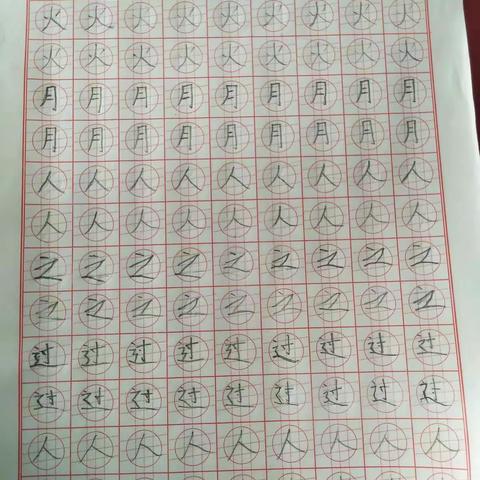 火火火火火火火火火
火火火火火火火火火
月月月月月月月月月
月月月月月月月月月
人人人人人人人人人
人人人人人人人人人
之之之之之之之之之
之之之之之之之之之
过过过过过过过过过
过过过过过过过过过
人人人人人人人人人